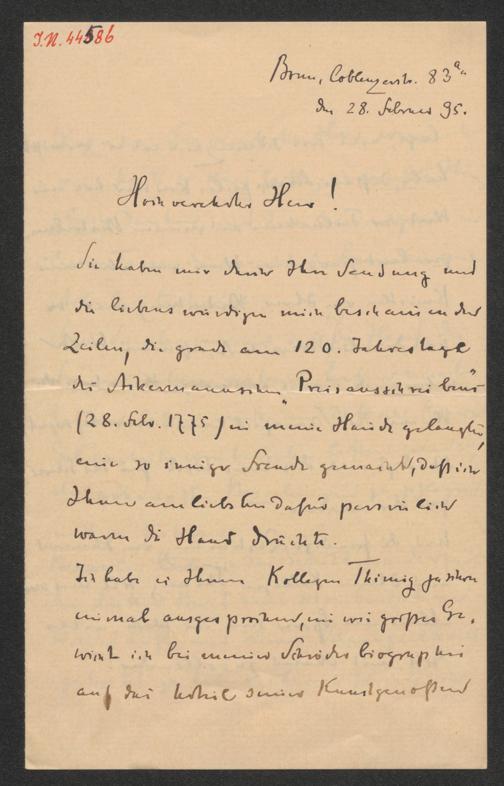 J.N. 44586
Bonn, Coblenzerstr. 83a
den 28. Februar 95.
Hochverehrter Herr!
Sie haben mir durch Ihre Sendung und
die liebenswürdigen mich beschämenden
Zeilen, die grade am 120. Jahrestage
des Ackermannschen „Preisausschreibens“
(28. Febr. 1775) in meine Hände gelangten,
eine so innige Freude gemacht, daß ich
Ihnen am liebsten dafür persönlich
warm die Hand drückte.
Ich habe es Ihrem Kollegen Thimig schon
einmal ausgesprochen, ein wie großes Ge-
wicht ich bei meiner Schröderbiographie
auf das Urteil seiner Kunstgenossen